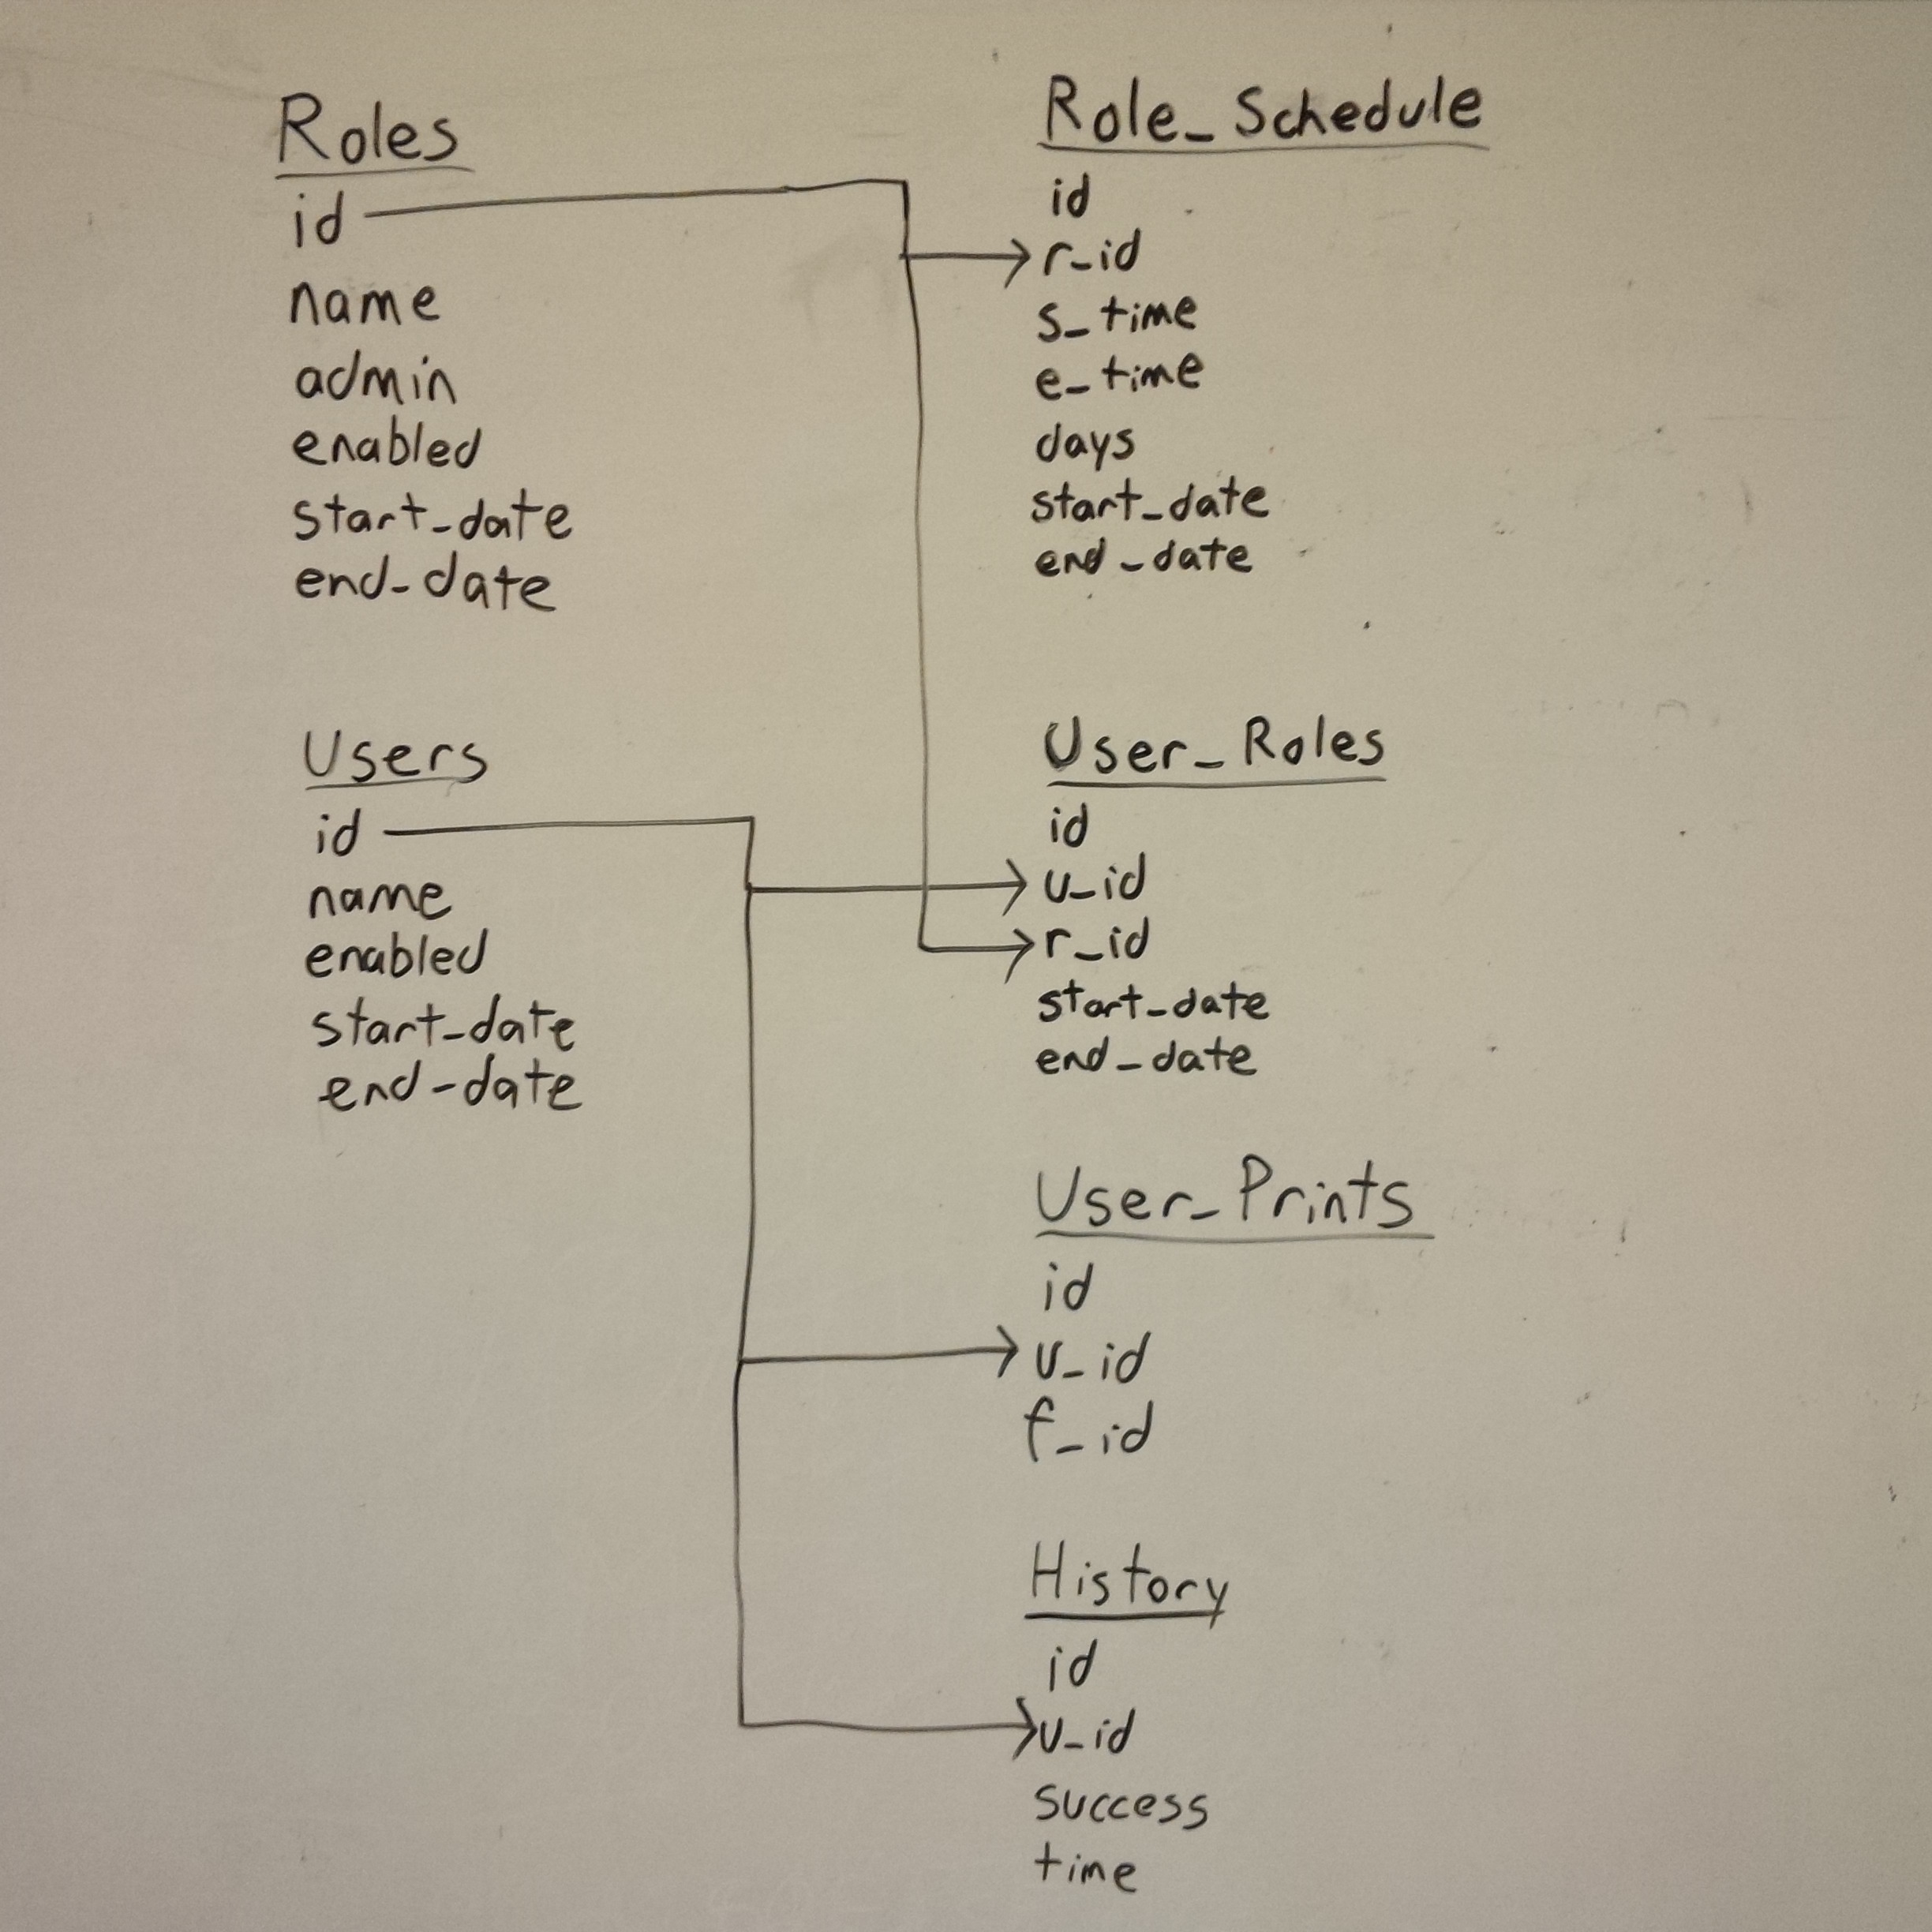 Roles
id
name
admin
enabled
start_date
end_date
Users
id
name
enabled
start_date
end_date
Role_Schedule
id
r_id
s_time
e_time
days
start_date
end_date
User_Roles
id
u_id
r_id
start_date
end_date
User_Prints
id
u_id
f_id
History
id
u_id
success
time